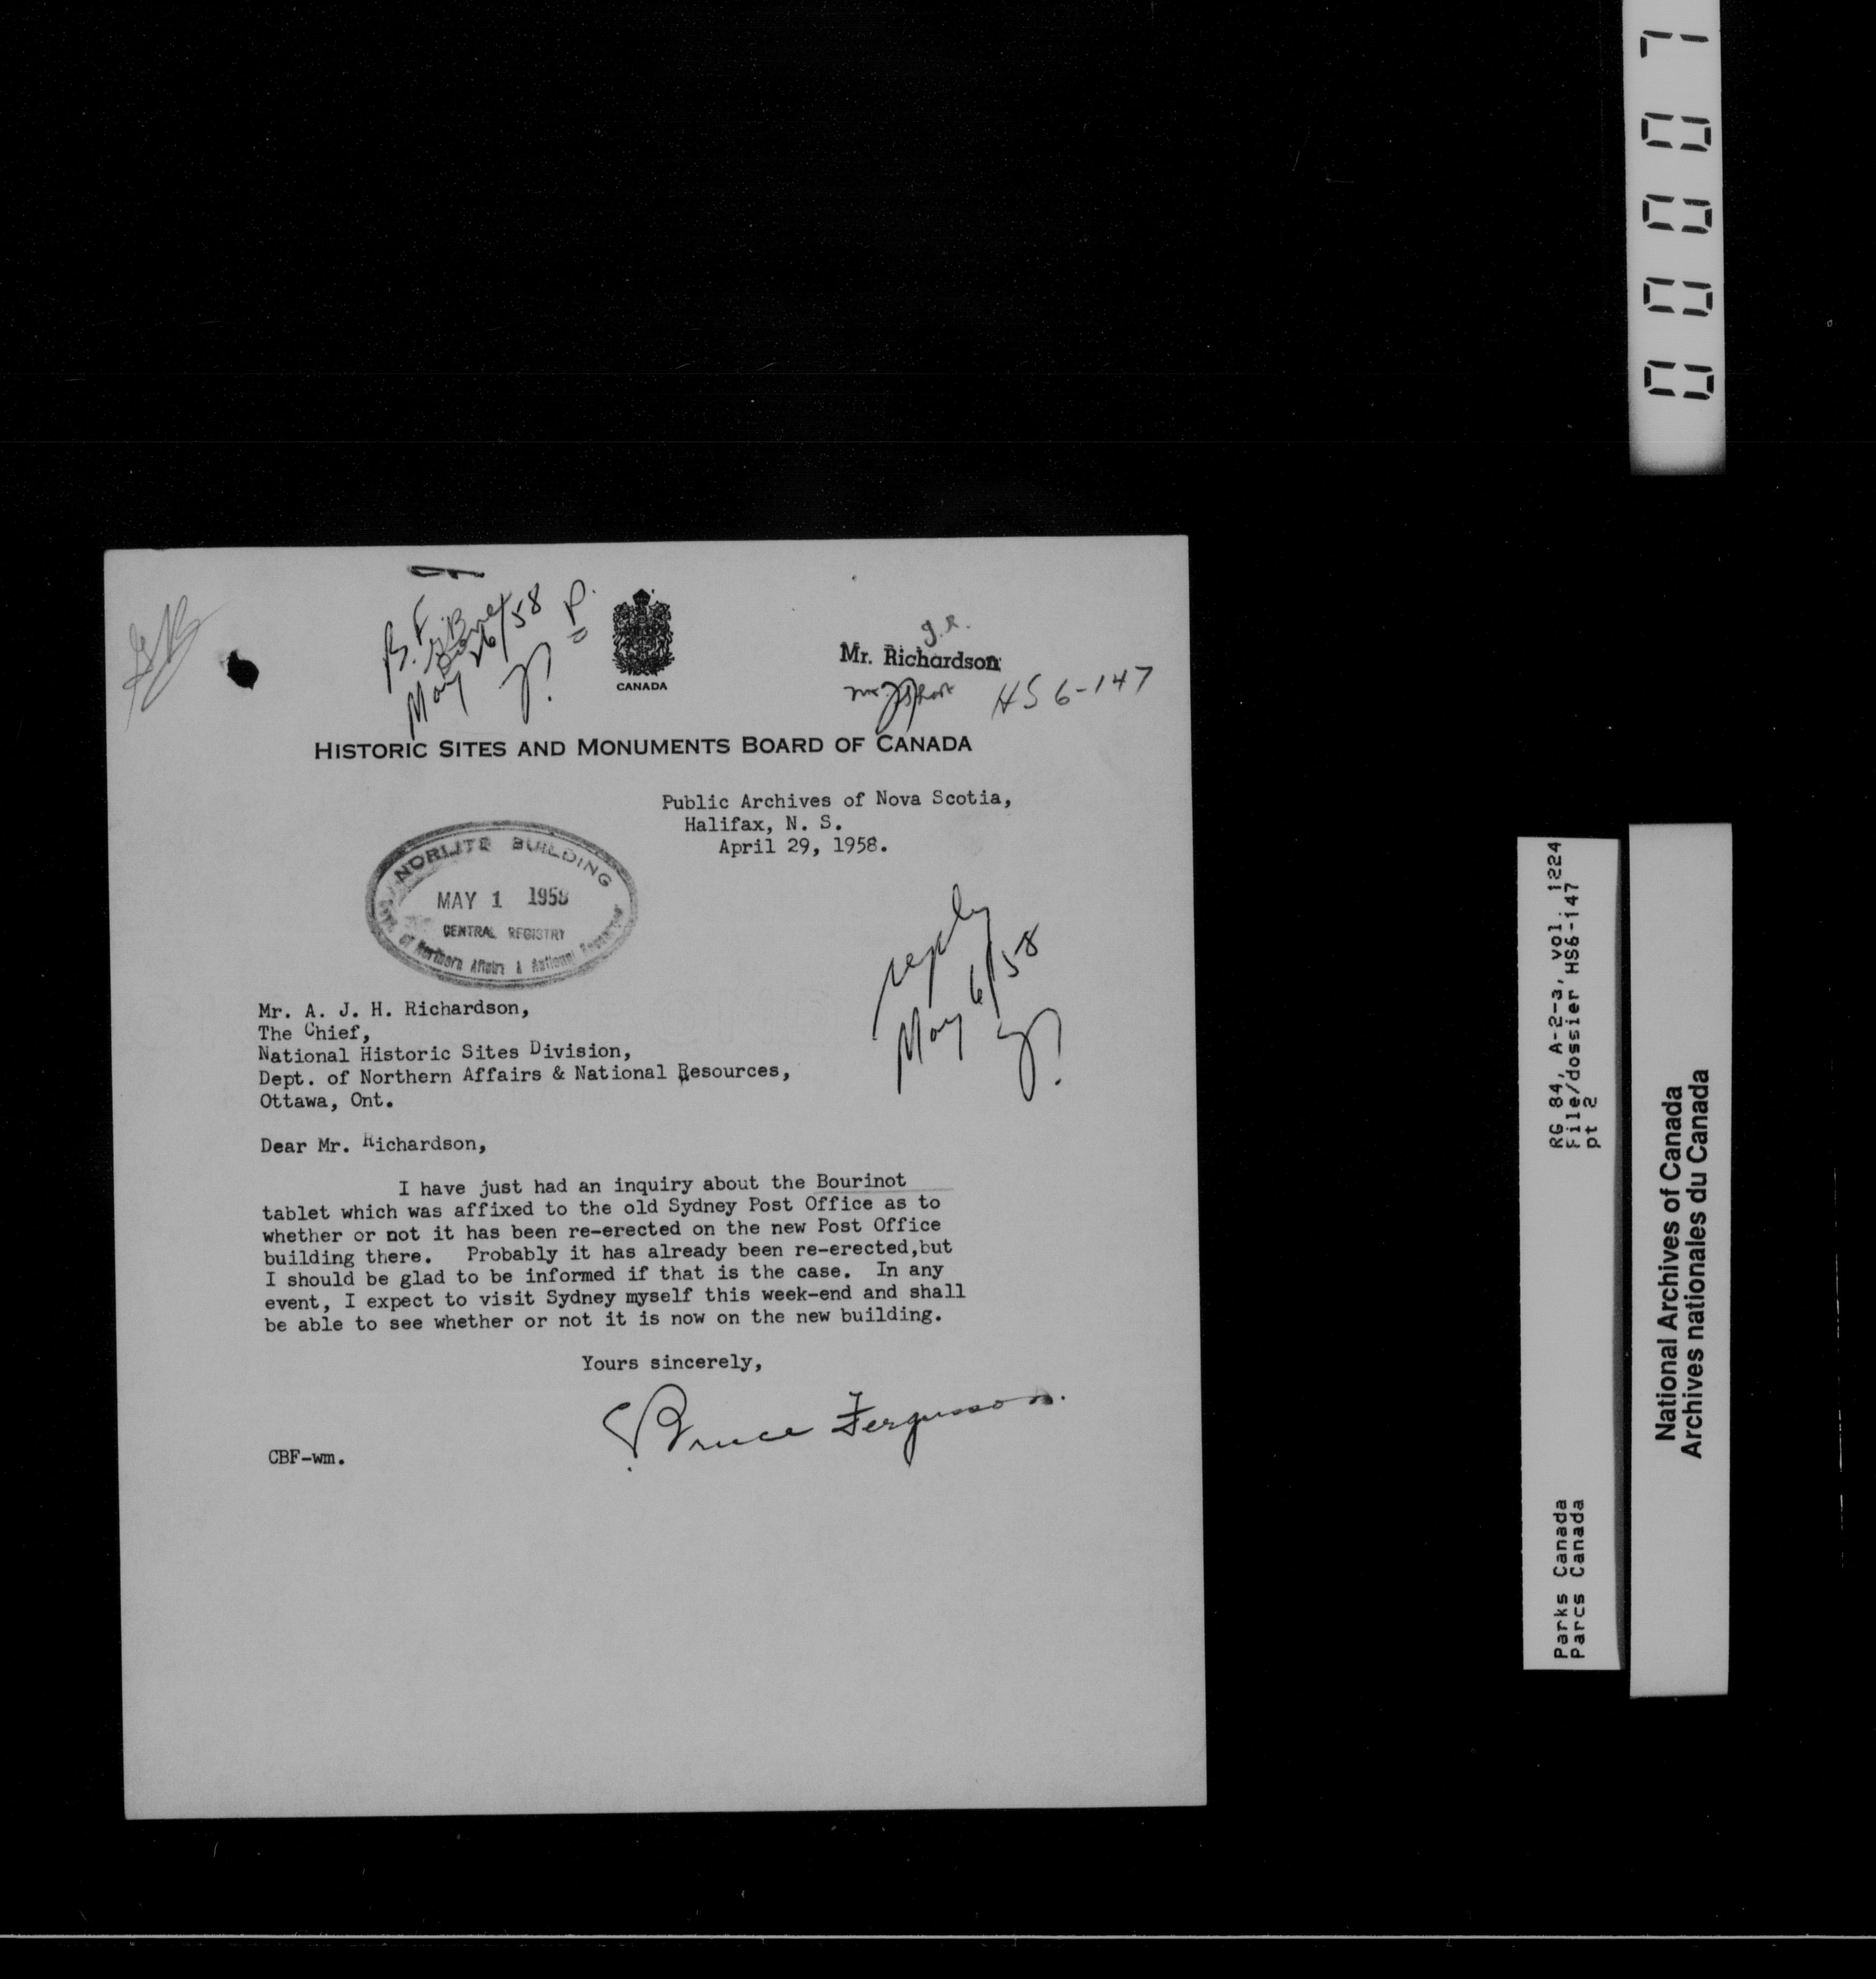 00007
B. F.
May 26/58
P.
CANADA
g.r.
Mr. Richardson
HS 6-147
HISTORIC SITES AND MONUMENTS BOARD OF CANADA
Public Archives of Nova Scotia,
Halifax, N. S.
April 29, 1958.
NORLITE BUILDING
MAY 1 1958
CENTRAL REGISTRY
Dept. of Northern Affairs & National Resources
reply
May 6/58
Mr. A. J. H. Richardson,
The Chief,
National Historic Sites Division,
Dept. of Northern Affairs & National Resources,
Ottawa, Ont.
Dear Mr. Richardson,
I have just had an inquiry about the Bourinot
tablet which was affixed to the old Sydney Post Office as to
whether or not it has been re-erected on the new Post Office
building there. Probably it has already been re-erected,but
I should be glad to be informed if that is the case. In any
event, I expect to visit Sydney myself this week-end and shall
be able to see whether or not it is now on the new building.
Yours sincerely,
C. Bruce Fergusson.
CBF-wm.
RG 84, A-2-a, vol. 1224
File/dossier HS6-147
pt 2
Parks Canada
Parcs Canada
National Archives of Canada
Archives nationales du Canada